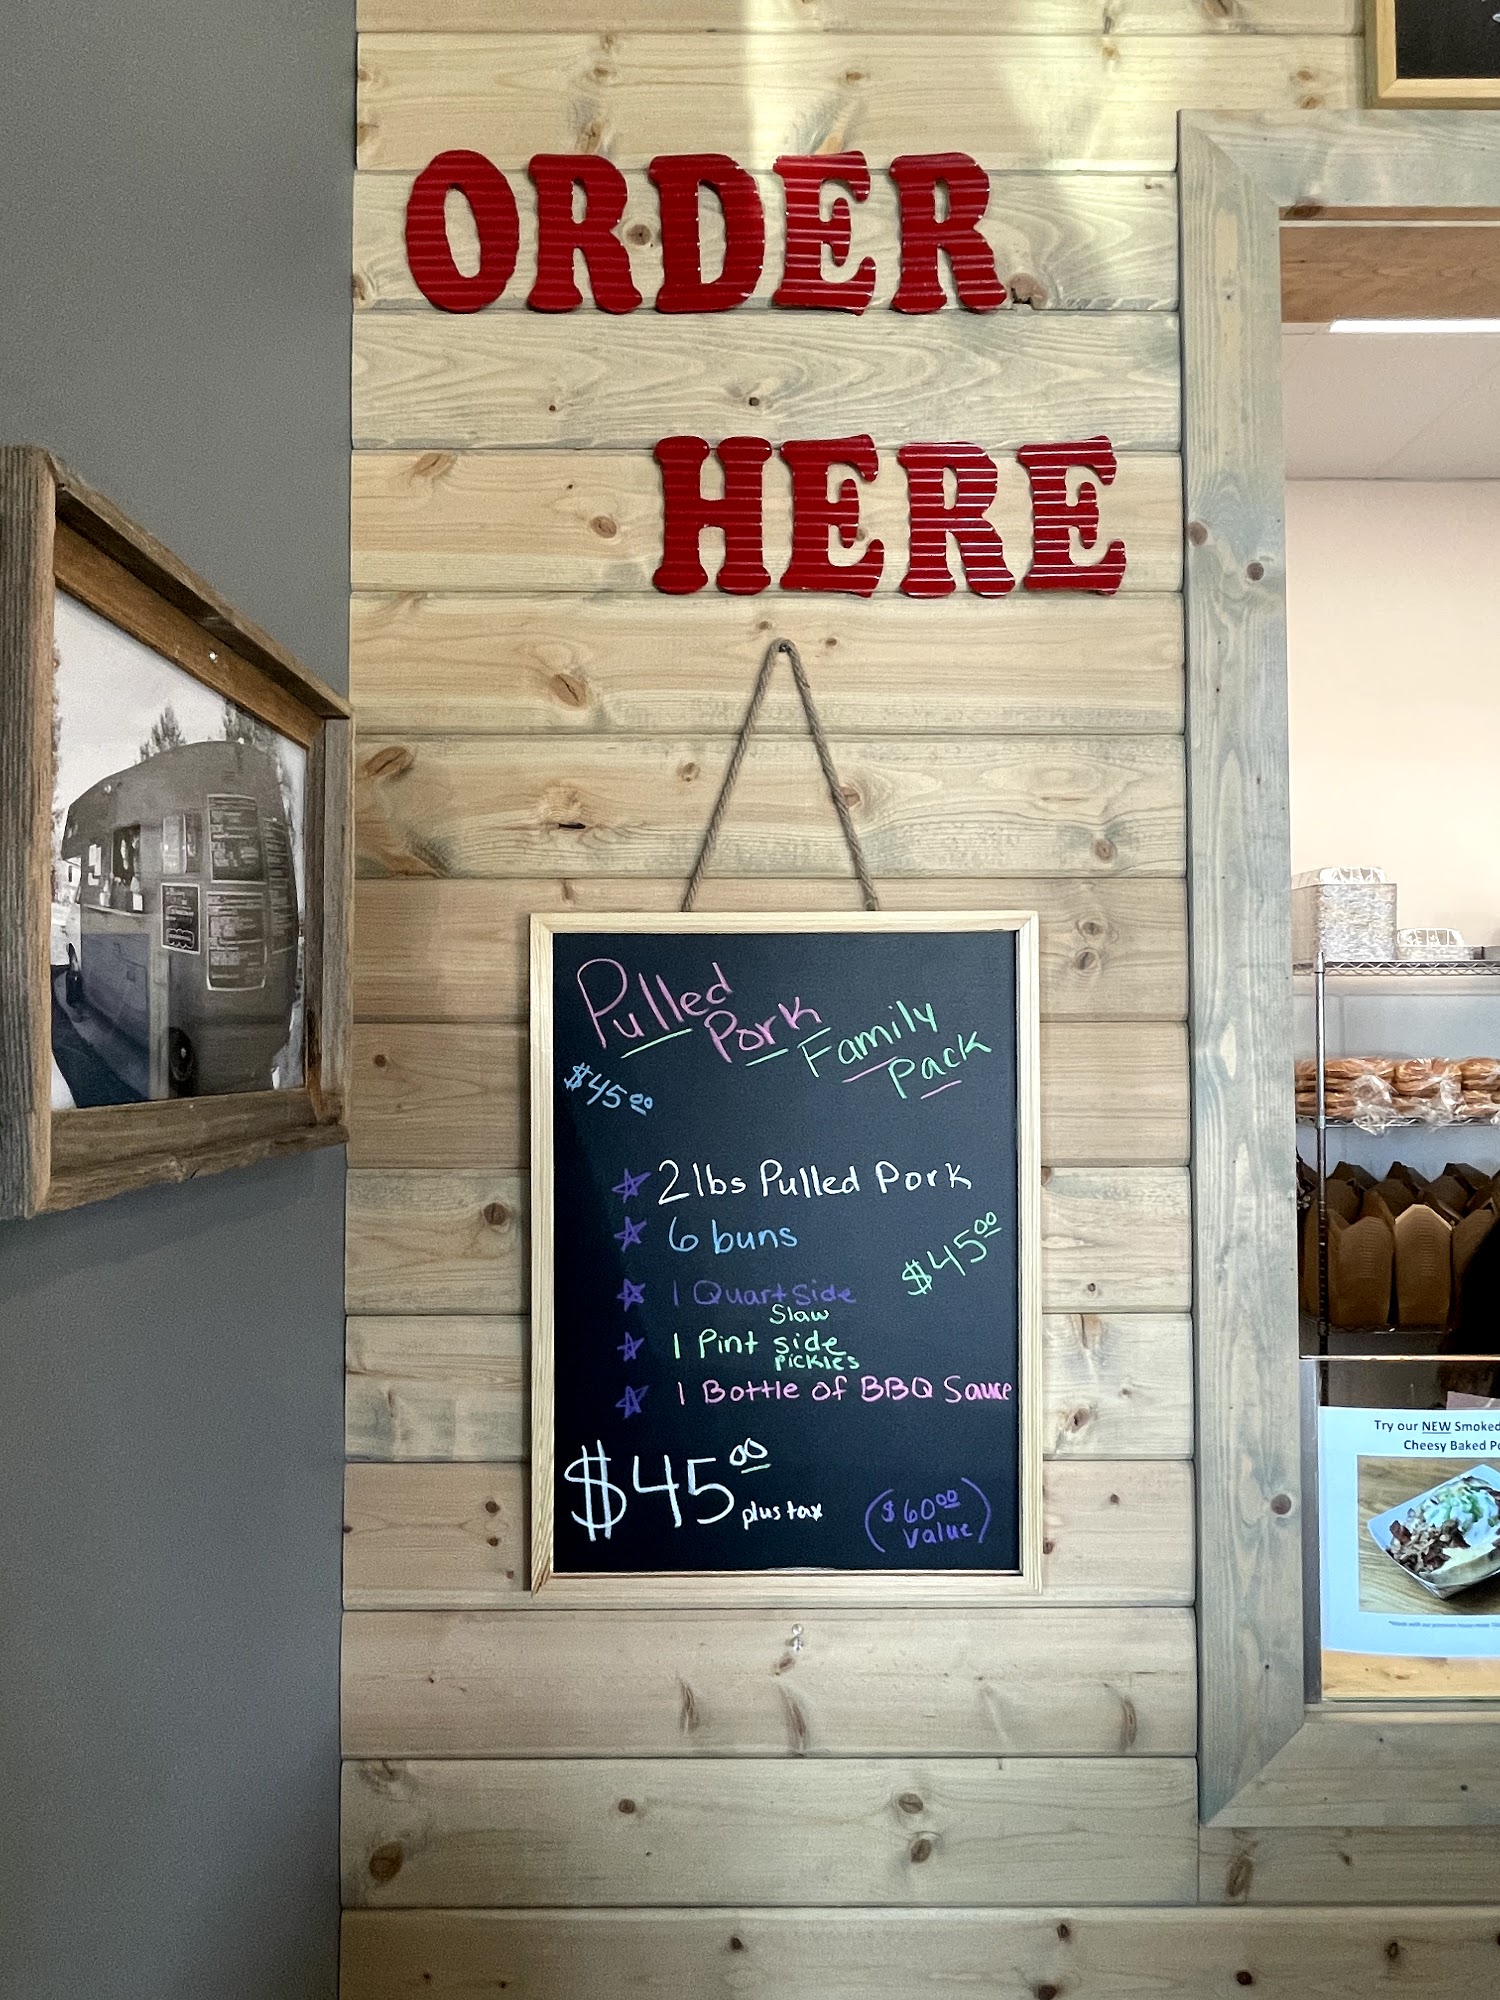 ORDER
HERE
Pulled
Pork
Family
Pack
$45.00
2 lbs Pulled Pork
6 buns
$45.00
1 Quart side
Slaw
1 Pint side
Pickles
1 Bottle of BBQ Sauce
$45.00 plus tax
($60.00
Value)
Try our NEW Smoked
Cheesy Baked